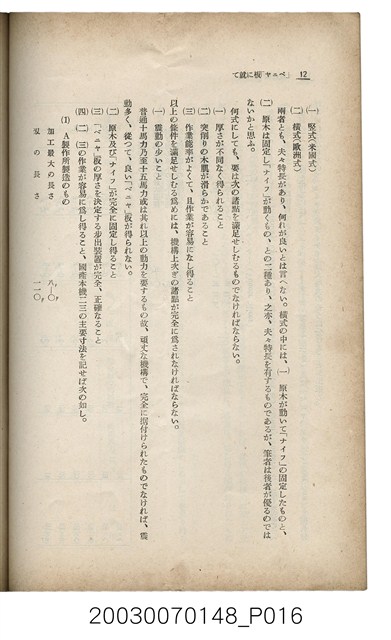 12 「ベニヤ」板に就て
(一) 竪式(米國式)
(二) 横式(歐洲式)
兩者とも、夫々特長があり、何れが良いとは言へない。橫式の中には、(一) 原木が動いて「ナイフ」の固定したものと、
(二) 原木は固定し「ナイフ」が動くもの、との二種あり、之亦、夫々特長を有するものであるが、筆者は後者が優るのでは
ないかと思ふ。
何式にしても、要は次の諸點を滿足せしむるものでなければならない。
(一) 厚さが不同なく得られること
(二) 突削りの木肌が滑らかであること
(三) 作業能率がよくて、且作業が容易になし得ること
以上の條件を滿足せしむる爲めには、機構上次ぎの諸點が完全に爲されなければならない。
(一) 震動の少いこと
普通十馬力乃至十五馬力或は其れ以上の動力を要するもの故、頑丈な機構で、完全に据付けられたものでなければ、震
動多く、從つて、良い「ベニヤ」板が得られない。
(二) 原木及び「ナイフ」が完全に固定し得ること
(三) 「ベニヤ」板の厚さを決定する步出裝置が完全、正確なること
(四) (一)(二)(三)の作業が容易に爲し得ること、國產本機二三の主要寸法を記せば次の如し。
(1) A製作所製造のもの
加工最大の長さ 八—一〇呎
〃 の長さ
20030070148_P016